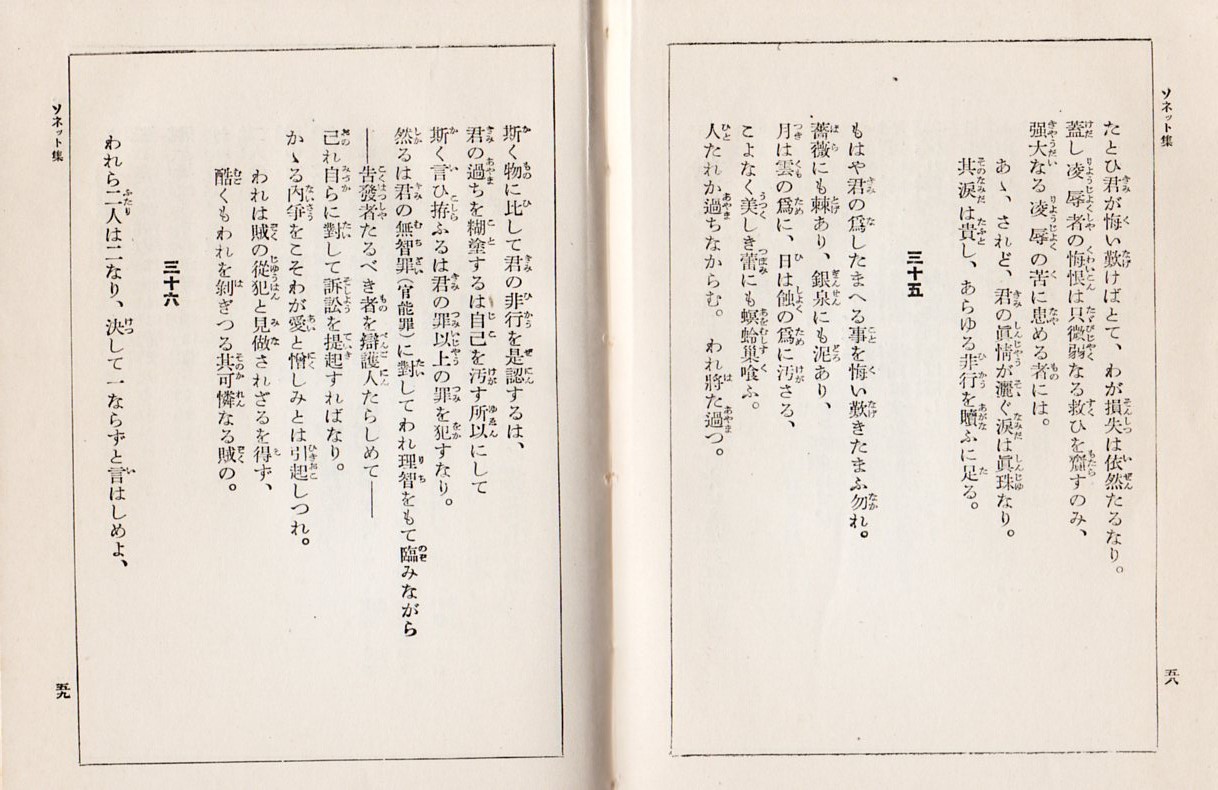 ソネット集
たとひ君が悔い歎けばとて、わが損失は依然たるなり。
蓋し凌辱者の悔恨は只微弱なる救ひを齎すのみ、
强大なる凌辱の苦に悩める者には。
あゝ、されど、君の眞情が灑ぐ涙は眞珠なり。
其涙は貴し、あらゆる非行を贖ふに足る。
三十五
もはや君の爲したまへる事を悔い歎きたまふ勿れ。
薔薇にも棘あり、銀泉にも泥あり、
月は雲の爲に、日は蝕の爲に汚さる、
こよなく美しき蕾にも螟蛉巢喰ふ。
人たれか過ちなからむ。われ將た過つ。
五八
ソネット集
斯く物に比して君の非行を是認するは、
君の過ちを糊塗するは自己を汚す所以にして
斯く言ひ拵ふるは君の罪以上の罪を犯すなり。
然るは君の無智罪（官能罪）に對してわれ理智をもて臨みながら
――告發者たるべき者を辯護人たらしめて――
己れ自らに對して訴訟を提起すればなり。
かゝる内爭をこそわが愛と憎しみとは引起しつれ。
われは賊の從犯と見做されざるを得ず、
酷くもわれを剝ぎつる其可憐なる賊の。
三十六
われら二人は二なり、決して一ならずと言はしめよ、
五九